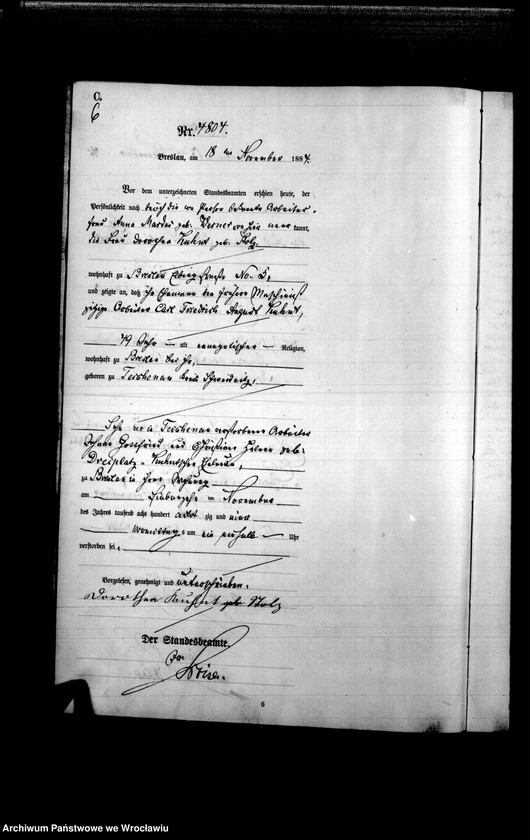 C.
6
Nr. 4804.
Breslau, am 18 ten November 1884.
Vor dem unterzeichneten Standesbeamten erschien heute, der
Persönlichkeit nach durch die der Person bekannte Arbeiter-
frau Anna geb. kannt,
die Frau Dorothea Kuhnt geb. Stolz
wohnhaft zu Breslau No 5,
und zeigte an, daß ihr Ehemann der frühere
jetzige Arbeiter Carl Friedrich August Kuhnt,
49 Jahr alt evangelischer Religion,
wohnhaft zu Breslau bei ihr,
geboren zu Teichenau Kreis Schweidnitz,
Sohn der zu Teichenau verstorbenen Arbeiter
Johann Gottfried und Christiane Helene geb.
Kuhnt'schen Eheleute,
zu Breslau in ihrer Wohnung
am siebzehn ten November
des Jahres tausend acht hundert acht zig und vier
um ein einhalb Uhr
verstorben sei.
Vorgelesen, genehmigt und unterschrieben.
Dorothea Kuhnt geb Stolz
Der Standesbeamte.
6
Archiwum Państwowe we Wrocławiu